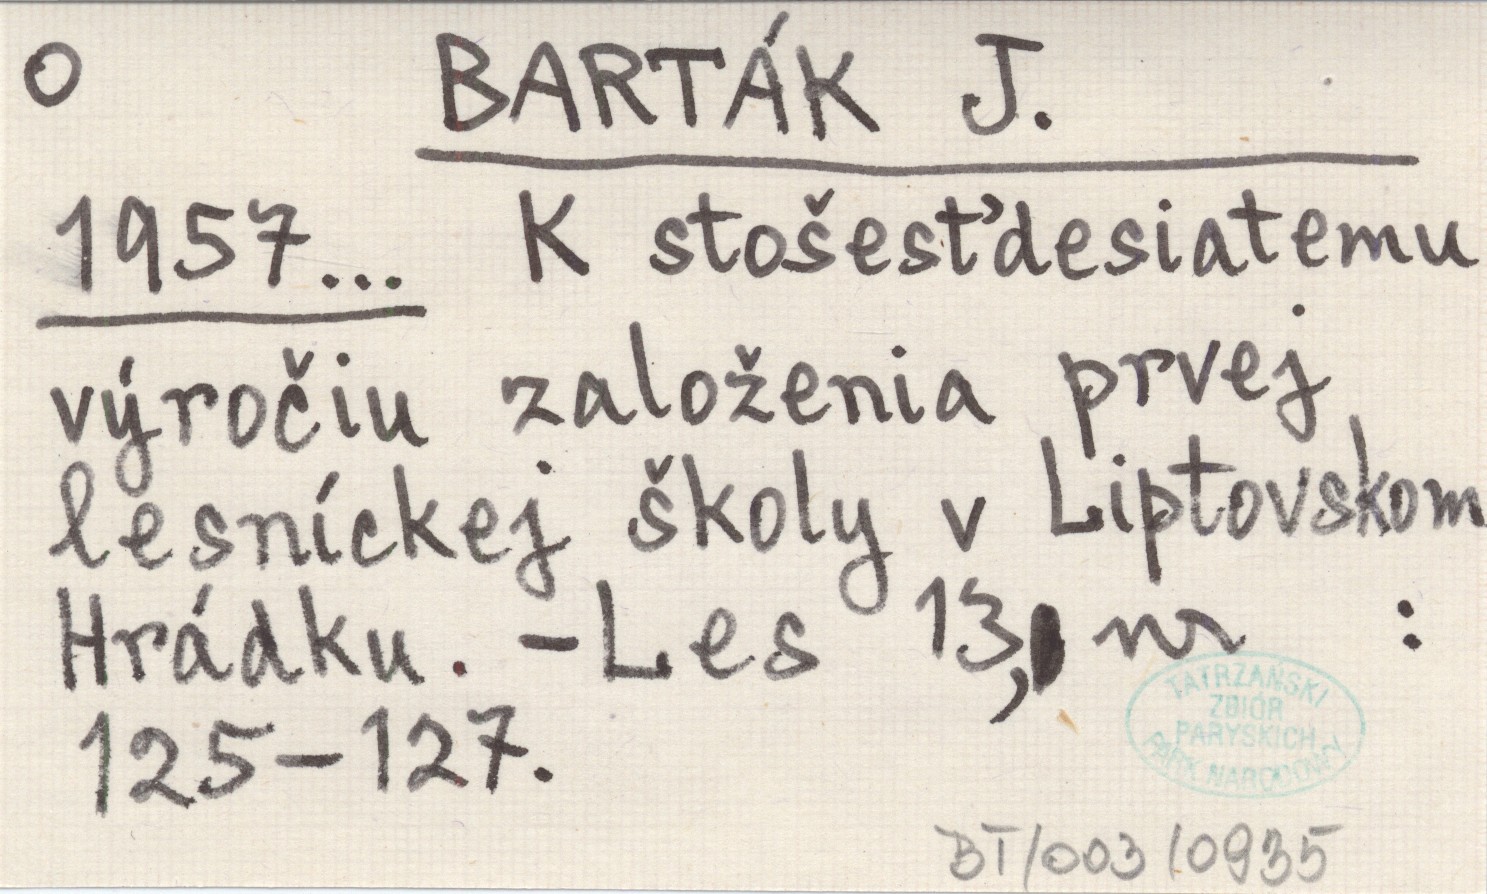 O BARTÁK J.
1957... K stošesťdesiatemu
výročiu založenia prvej
lesníckej školy v Liptovskom
Hrádku. - Les 13, nr :
125-127.
TATRZAŃSKI
ZBIÓR
PARYSKICH
PARK NARODOWY
BT/003/0935